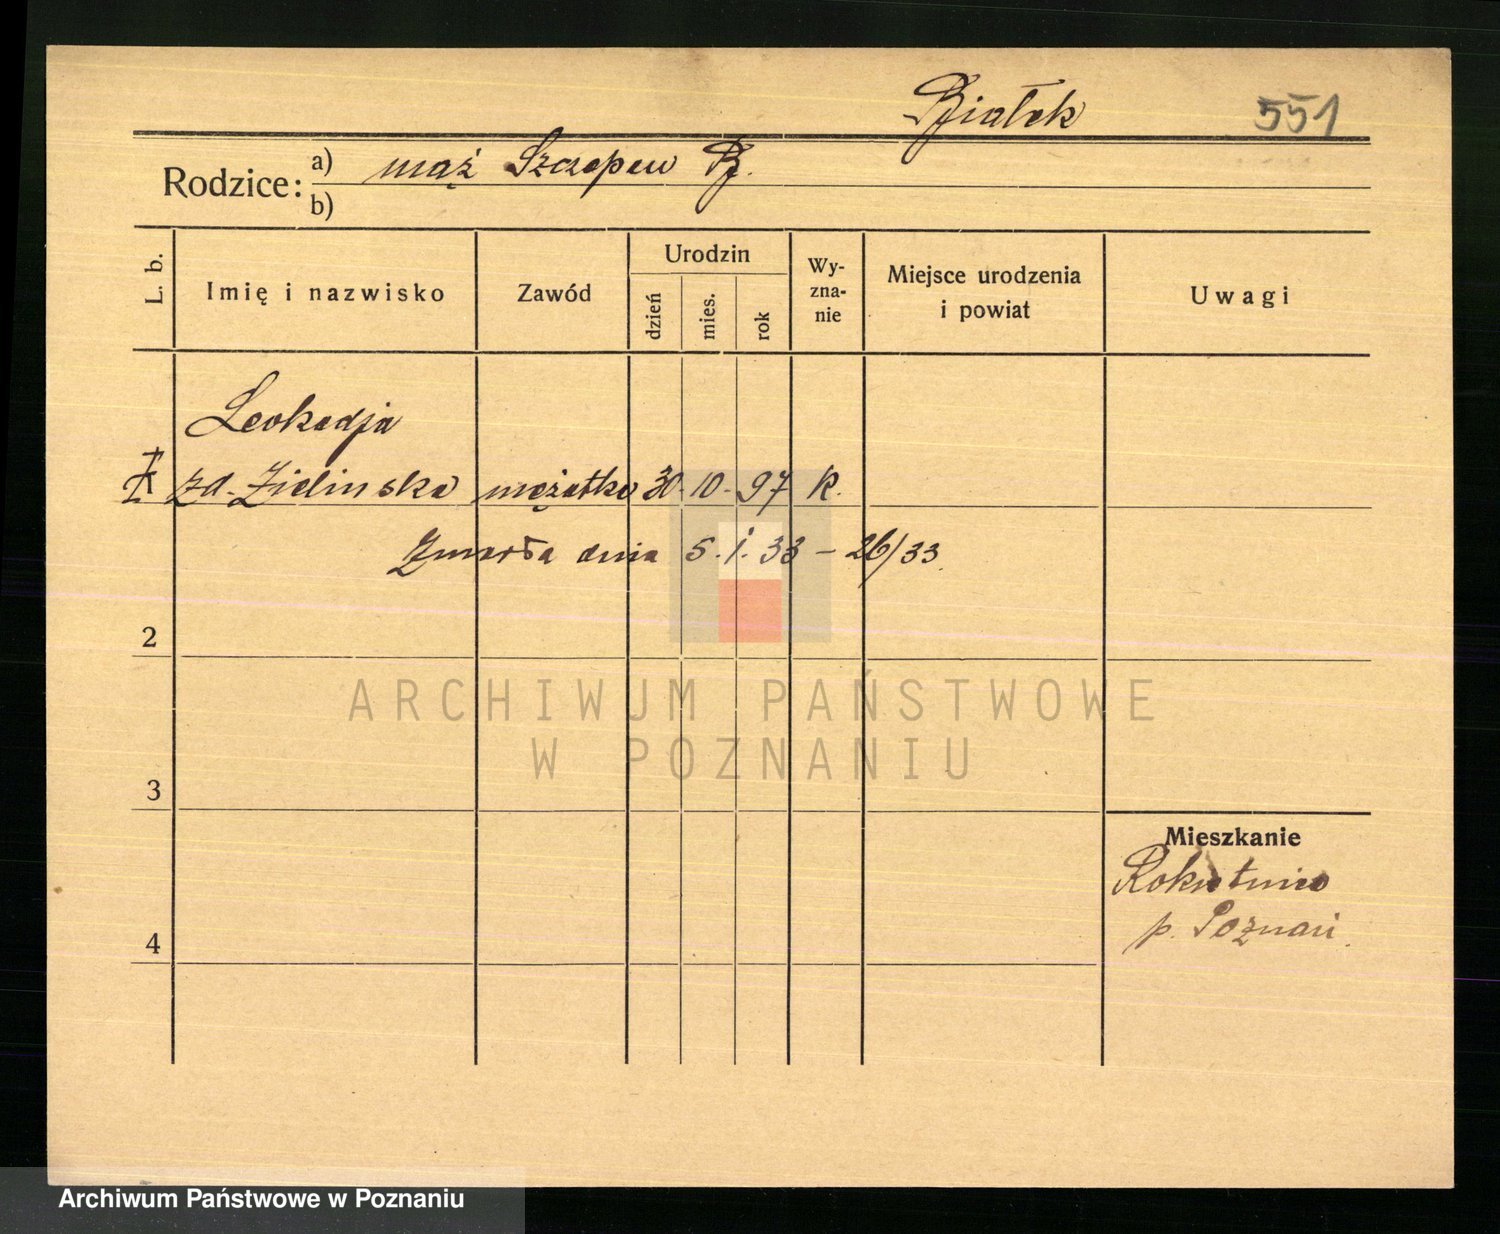 Białek 551
Rodzice: a) mąż Szczepan B.
b)
L. b. Imię i nazwisko Zawód Urodzin dzień mies. rok Wy-zna-nie Miejsce urodzenia i powiat Uwagi
Leokadja
1 zd. Zielinska mężatka 30. 10. 97 K.
Zmarła dnia 5. 1. 33 – 26/33.
2
ARCHIWUM PAŃSTWOWE
W POZNANIU
3
Mieszkanie
Rokietnica
p. Poznań.
4
Archiwum Państwowe w Poznaniu